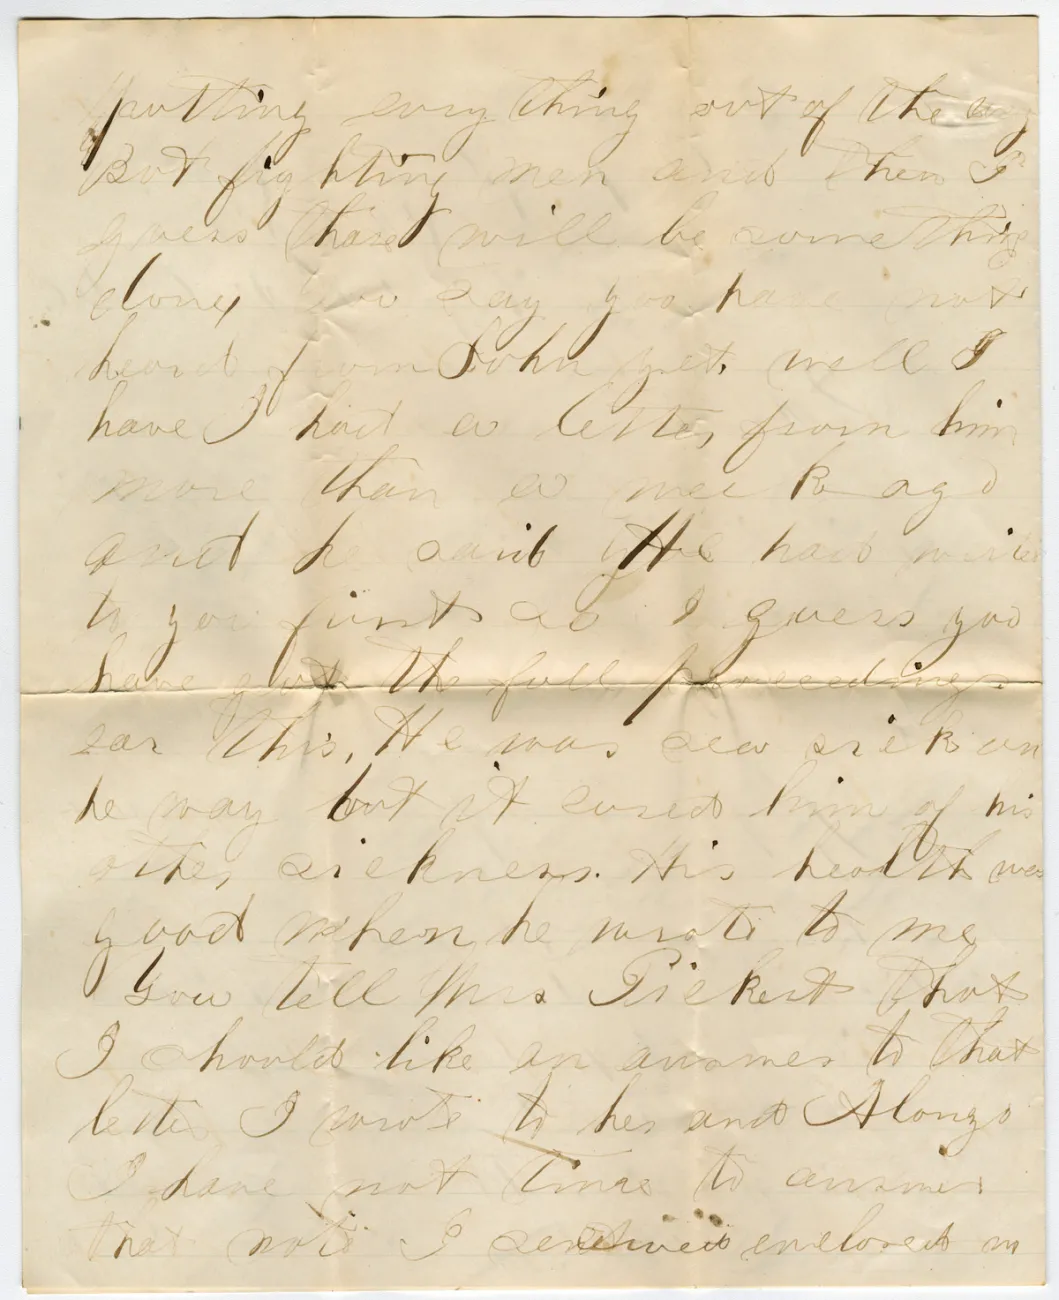 putting evrything out of the way
But fighting men and then I
guess thare will be something
done, you say you have not
heard from John yet. well I
have I had a letter from him
more than a week ago
and he said he had writen
to you first so I guess you
have got the full proceedings
ear this, He was sea sick on
he way but it cured him of his
other sickness. His health was
good when he wrote to me
You tell Mrs Pickert that
I should like an answer to that
letter I wrote to her and Alonzo
I have not time to answer
that note I received enclosed in